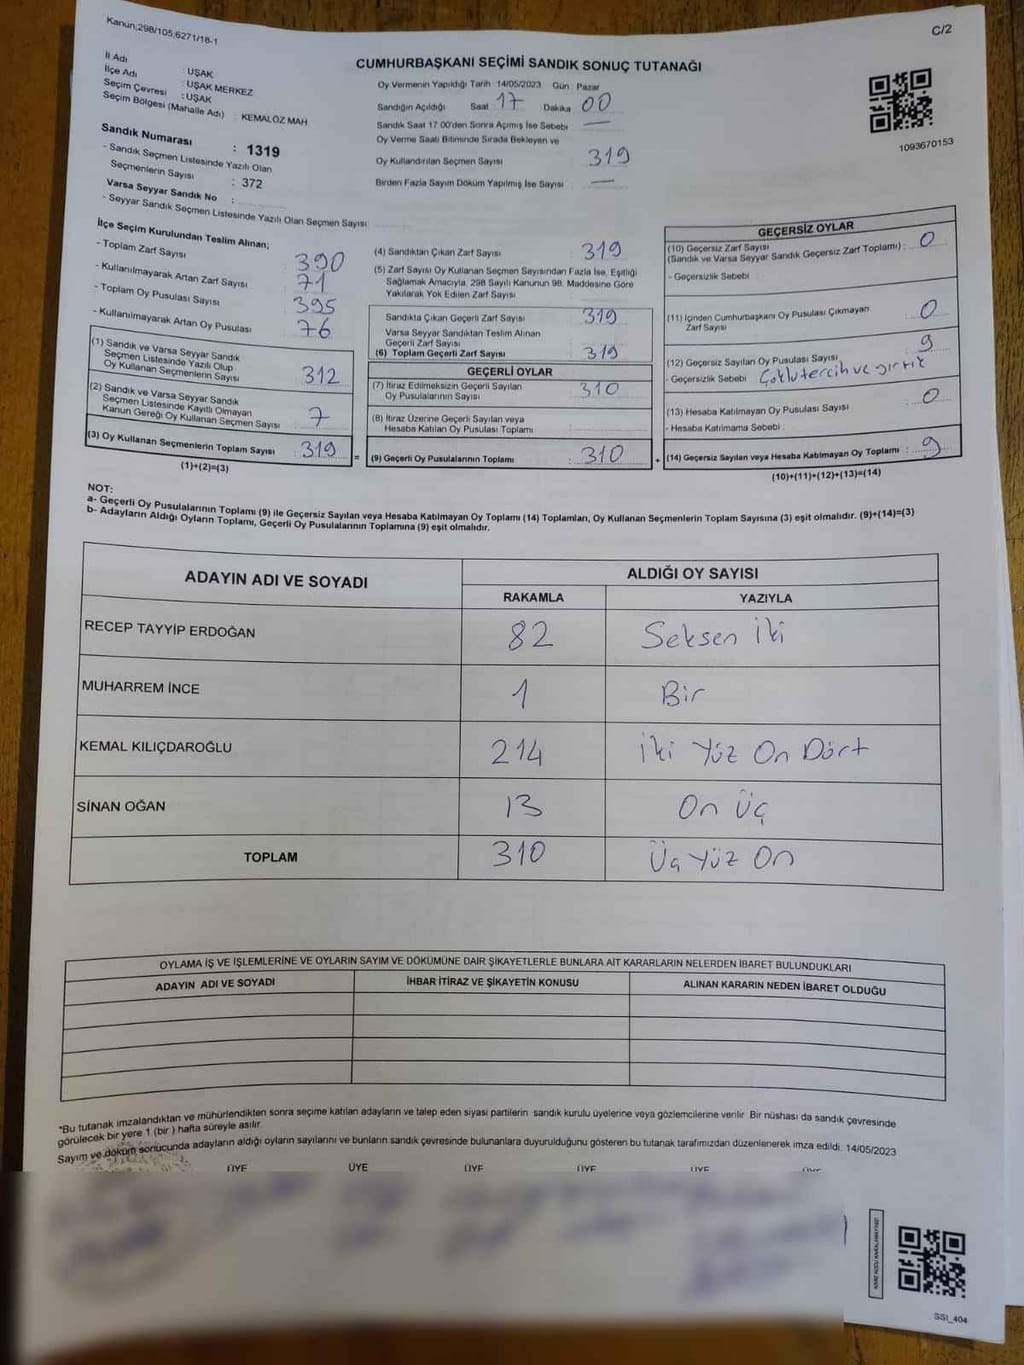 Kanun;298/105,6271/18-1
C/2
İl Adı : UŞAK
İlçe Adı : UŞAK MERKEZ
Seçim Çevresi : UŞAK
Seçim Bölgesi (Mahalle Adı) : KEMALÖZ MAH
Sandık Numarası : 1319
- Sandık Seçmen Listesinde Yazılı Olan
Seçmenlerin Sayısı : 372
Varsa Seyyar Sandık No :
- Seyyar Sandık Seçmen Listesinde Yazılı Olan Seçmen Sayısı
CUMHURBAŞKANI SEÇİMİ SANDIK SONUÇ TUTANAĞI
Oy Vermenin Yapıldığı Tarih 14/05/2023 Gün Pazar
Sandığın Açıldığı Saat 17 Dakika 00
Sandık Saat 17:00'den Sonra Açımış İse Sebebi —
Oy Verme Saati Bitiminde Sırada Bekleyen ve
Oy Kullandırılan Seçmen Sayısı 319
Birden Fazla Sayım Döküm Yapılmış İse Sayısı —
1093670153
İlçe Seçim Kurulundan Teslim Alınan;
- Toplam Zarf Sayısı 390
- Kullanılmayarak Artan Zarf Sayısı 71
- Toplam Oy Pusulası Sayısı 395
- Kullanılmayarak Artan Oy Pusulası 76
(1) Sandık ve Varsa Seyyar Sandık
Seçmen Listesinde Yazılı Olup
Oy Kullanan Seçmenlerin Sayısı : 312
(2) Sandık ve Varsa Seyyar Sandık
Seçmen Listesinde Kayıtlı Olmayan
Kanun Gereği Oy Kullanan Seçmen Sayısı : 7
(3) Oy Kullanan Seçmenlerin Toplam Sayısı : 319
(1)+(2)=(3)
(4) Sandıktan Çıkan Zarf Sayısı 319
(5) Zarf Sayısı Oy Kullanan Seçmen Sayısından Fazla İse, Eşitliği
Sağlamak Amacıyla, 298 Sayılı Kanunun 98. Maddesine Göre
Yakılarak Yok Edilen Zarf Sayısı
Sandıkta Çıkan Geçerli Zarf Sayısı 319
Varsa Seyyar Sandıktan Teslim Alınan
Geçerli Zarf Sayısı
(6) Toplam Geçerli Zarf Sayısı : 319
GEÇERLİ OYLAR
(7) İtiraz Edilmeksizin Geçerli Sayılan
Oy Pusulalarının Sayısı : 310
(8) İtiraz Üzerine Geçerli Sayılan veya
Hesaba Katılan Oy Pusulası Toplamı :
= (9) Geçerli Oy Pusulalarının Toplamı : 310
GEÇERSİZ OYLAR
(10) Geçersiz Zarf Sayısı
(Sandık ve Varsa Seyyar Sandık Geçersiz Zarf Toplamı) : 0
- Geçersizlik Sebebi :
(11) İçinden Cumhurbaşkanı Oy Pusulası Çıkmayan
Zarf Sayısı 0
(12) Geçersiz Sayılan Oy Pusulası Sayısı 9
- Geçersizlik Sebebi Çoklu tercih ve yırtık
(13) Hesaba Katılmayan Oy Pusulası Sayısı 0
- Hesaba Katılmama Sebebi :
+ (14) Geçersiz Sayılan veya Hesaba Katılmayan Oy Toplamı : 9
(10)+(11)+(12)+(13)=(14)
NOT:
a- Geçerli Oy Pusulalarının Toplamı (9) ile Geçersiz Sayılan veya Hesaba Katılmayan Oy Toplamı (14) Toplamları, Oy Kullanan Seçmenlerin Toplam Sayısına (3) eşit olmalıdır. (9)+(14)=(3)
b- Adayların Aldığı Oyların Toplamı, Geçerli Oy Pusulalarının Toplamına (9) eşit olmalıdır.
ADAYIN ADI VE SOYADI ALDIĞI OY SAYISI
RAKAMLA YAZIYLA
RECEP TAYYİP ERDOĞAN 82 Seksen İki
MUHARREM İNCE 1 Bir
KEMAL KILIÇDAROĞLU 214 İki Yüz On Dört
SİNAN OĞAN 13 On Üç
TOPLAM 310 Üç Yüz On
OYLAMA İŞ VE İŞLEMLERİNE VE OYLARIN SAYIM VE DÖKÜMÜNE DAİR ŞİKAYETLERLE BUNLARA AİT KARARLARIN NELERDEN İBARET BULUNDUKLARI
ADAYIN ADI VE SOYADI İHBAR İTİRAZ VE ŞİKAYETİN KONUSU ALINAN KARARIN NEDEN İBARET OLDUĞU
*Bu tutanak imzalandıktan ve mühürlendikten sonra seçime katılan adayların ve talep eden siyasi partilerin sandık kurulu üyelerine veya gözlemcilerine verilir. Bir nüshası da sandık çevresinde
görülecek bir yere 1 (bir ) hafta süreyle asılır.
Sayım ve döküm sonucunda adayların aldığı oyların sayılarını ve bunların sandık çevresinde bulunanlara duyurulduğunu gösteren bu tutanak tarafımızdan düzenlenerek imza edildi. 14/05/2023
ÜYE ÜYE ÜYE ÜYE ÜYE
SSI_404